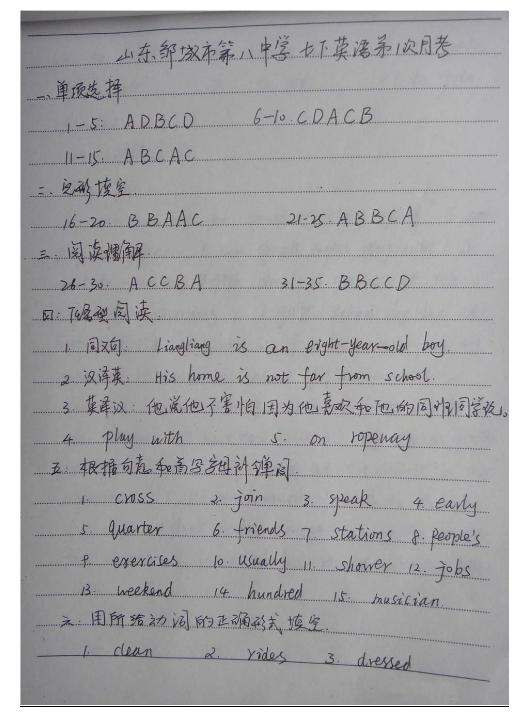 山东邹城市第八中学七下英语第1次月考
一、单项选择
1-5: ADBCD 6-10. CDACB
11-15. ABCAC
二、完形填空
16-20. BBAAC 21-25. ABBCA
三、阅读理解
26-30. ACCBA 31-35. BBCCD
四: 任务型阅读.
1. 同义句: Liangliang is an eight-year-old boy.
2. 汉译英: His home is not far from school.
3. 英译汉: 他说他不害怕因为他喜欢和他的同班同学玩。
4. play with 5. on ropeway
五: 根据句意和首写字母补单词.
1. cross 2. join 3. speak 4. early
5. quarter 6. friends 7. stations 8. people's
9. exercises 10. usually 11. shower 12. jobs
13. weekend 14. hundred 15. musician
六: 用所给动词的正确形式填空.
1. clean 2. rides 3. dressed